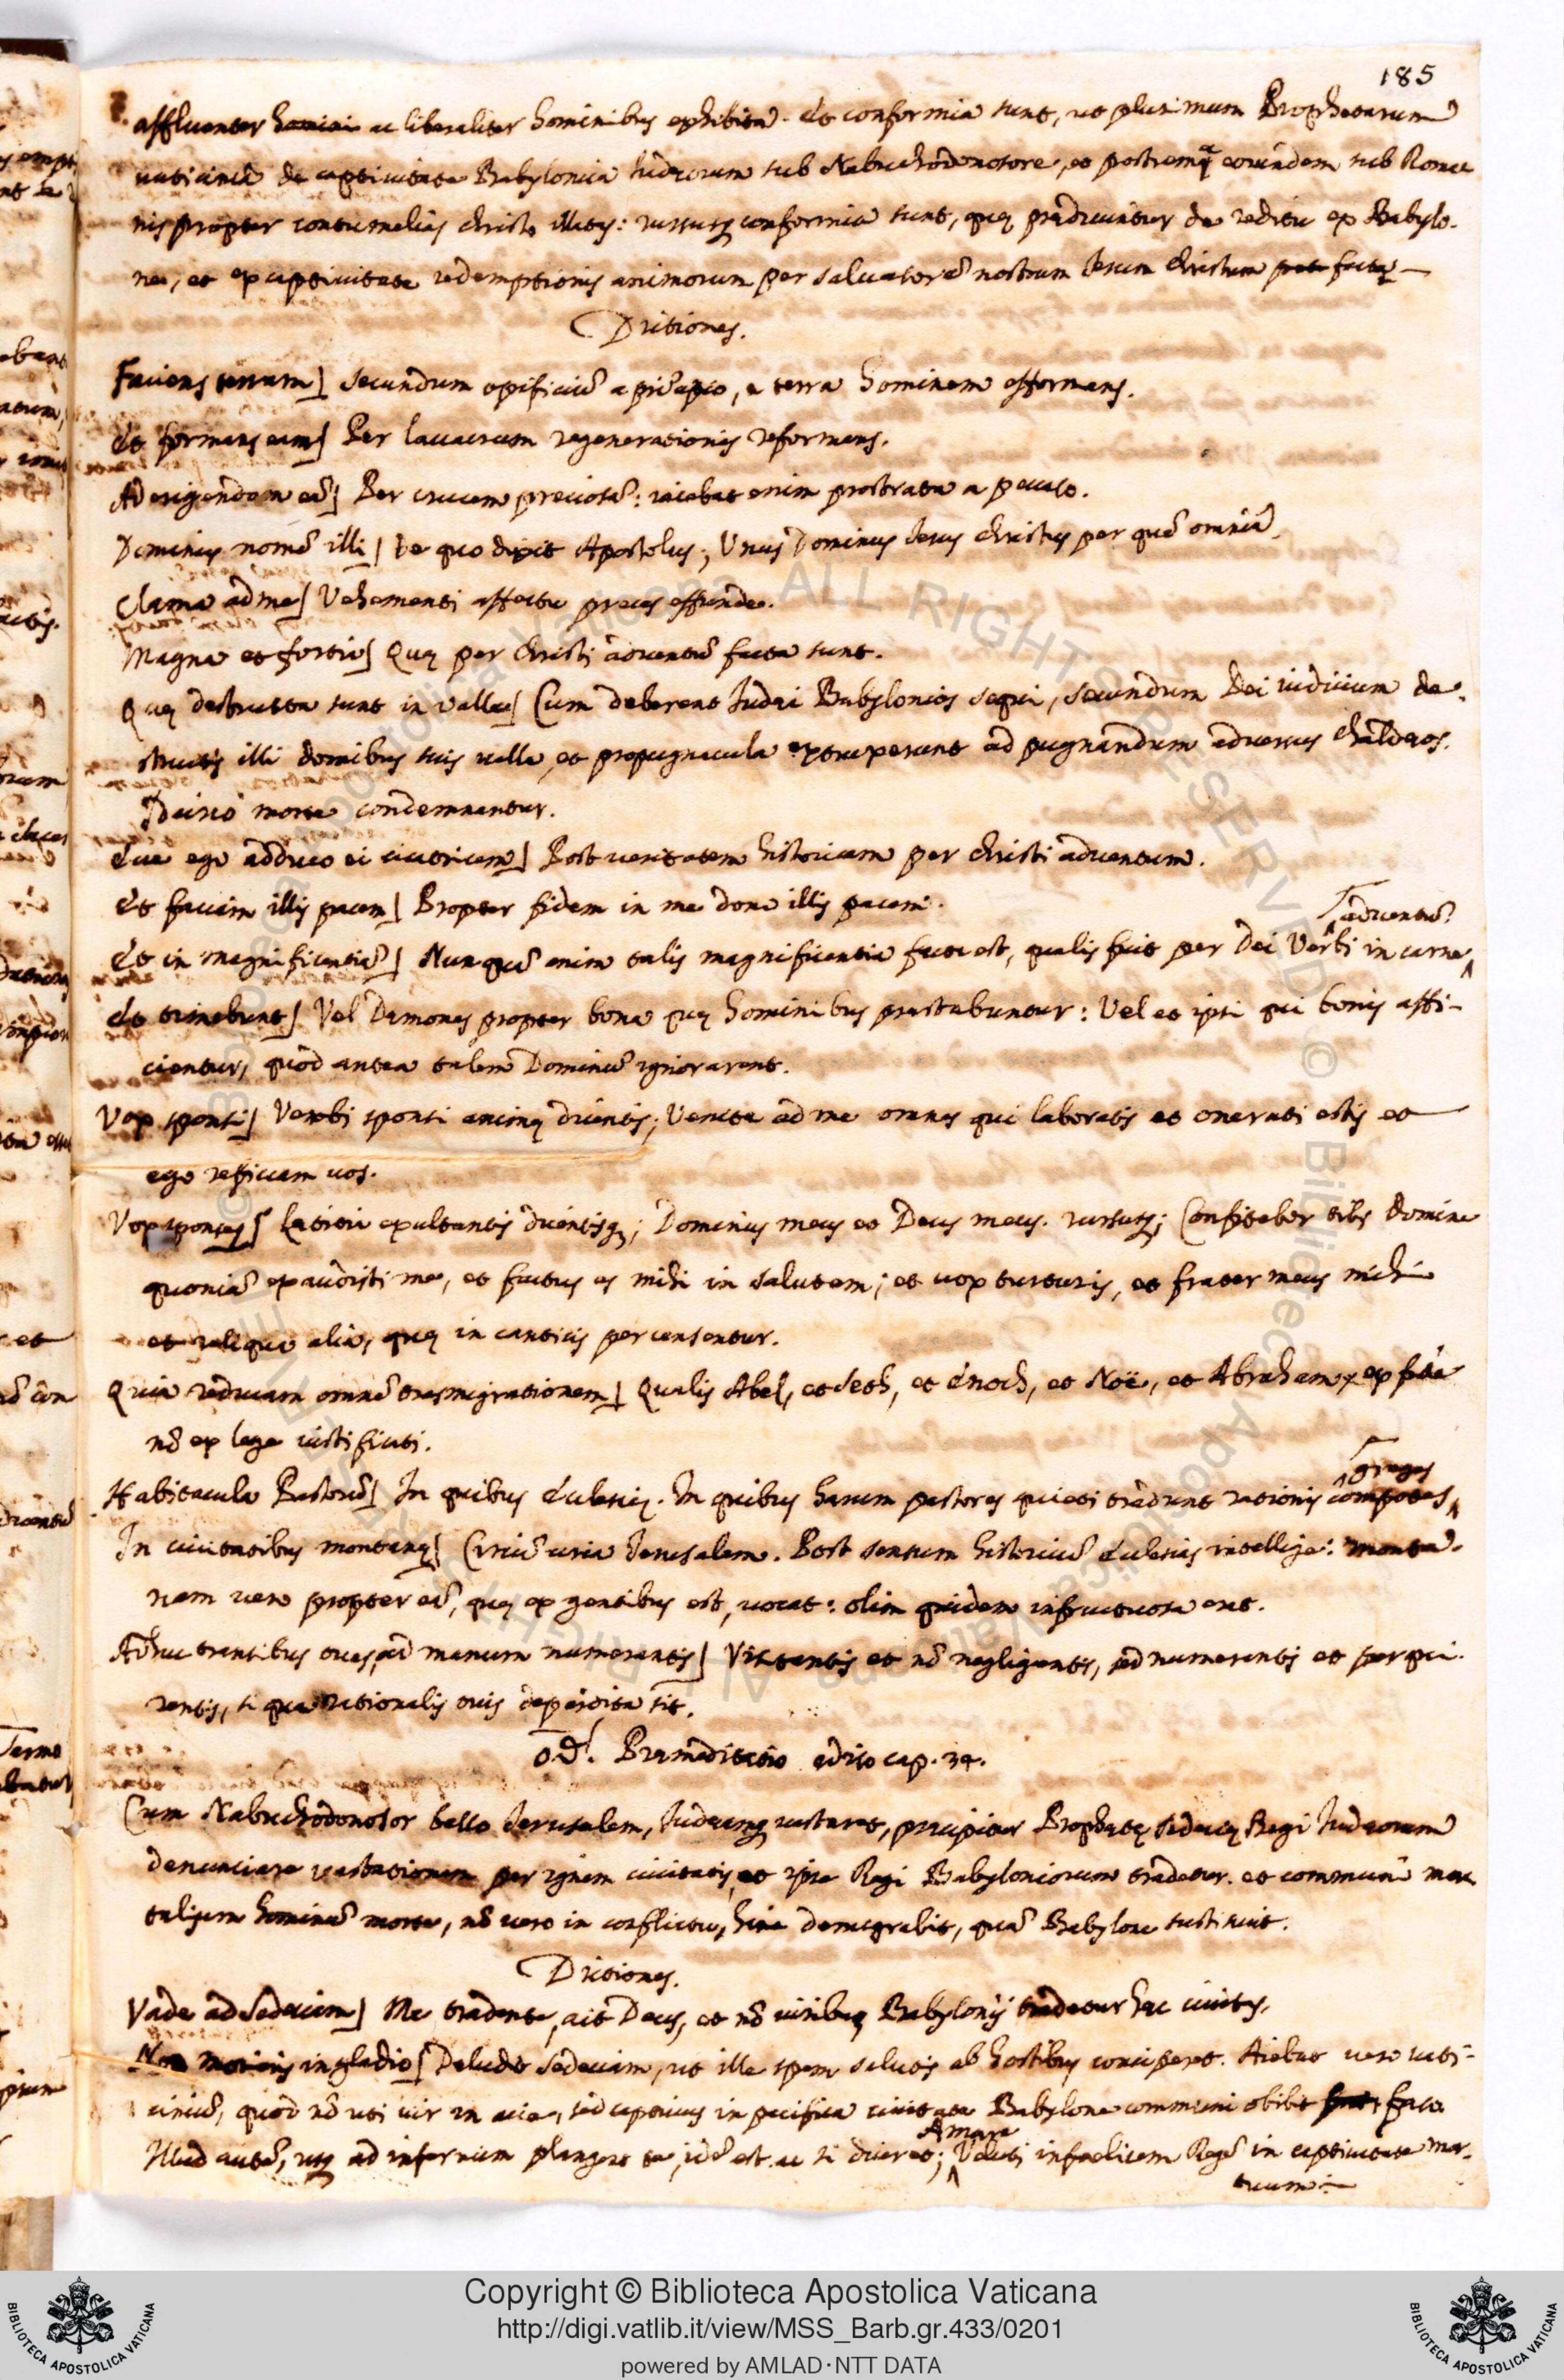 185
affluenter homini ac liberaliter hominibus exhibita. Et conformia sunt, ut plurimum Prophetarum
vaticinia de captivitate Babylonica Iudæorum sub Nabuchodonosore, et postremâ eorundem sub Roma-
nis propter contumelias Christo illatas: rursusq conformia sunt, quę prædicuntur de reditu ex Babylo-
ne, et ex captivitate redemptionis animorum per salvatorē nostrum Iesum Christum factę
Dictiones.
Faciens terram] secundum opificiū a principio, e terra hominem efformans.
Et formans eam] Per lavacrum regenerationis reformans.
Ad erigendam eā] Per crucem preciosā: iacebat enim prostrata a peccato.
Dominus nomē illi] De quo dixit Apostolus; Unus Dominus Iesus Christus per quē omnia.
Clama ad me] Vehementi affectu preces effunde.
Magna et fortia] Quę per Christi adventū facta sunt.
Quę destructa sunt in valla] Cum deberent Iudæi Babylonios sequi, secundum Dei iudicium de-
structis illi domibus suis valla, et propugnacula extruxerunt ad pugnandum adversus Chaldæos.
Idcirco morte condemnantur.
Ecce ego adduco ei cicatricem] Post veritatem historicam per Christi adventum.
Et faciam illis pacem] Propter fidem in me dono illis pacem.
adventū.
Et in magnificentiā] Nunquā enim talis magnificentia facta est, qualis fuit per Dei Verbi in carne
Et timebunt] Vel Dæmones propter bona quę hominibus præstabuntur: Vel et ipsi qui bonis affi-
cientur, quòd antea talem Dominū ignorarent.
Vox sponsi] Verbi sponsi animę dicentis; Venite ad me omnes qui laboratis et onerati estis et
ego reficiam vos.
Vox sponsę] Lætitia exultantis dicentisq; Dominus meus et Deus meus. rursusq; Confitebor tibi Domine
quoniā exaudisti me, et factus es mihi in salutem; et vox turturis, et frater meus mihi
et reliqua alia, quę in canticis percensentur.
Quia reducam omnē transmigrationem] Qualis Abel, et Seth, et Enoch, et Noë, et Abraham, ex fide
nō ex lege iustificati.
greges
Habitacula Pastorū] In quibus Ecclesię. In quibus harum pastores quieti tradunt rationis compotes
In civitatibus montanę] Circū circa Ierusalem. Post sensum historicū Ecclesias intellige: monta-
nam vero propter eā, quę ex gentibus est, vocat: olim quidem infructuosa erat.
Adhuc transibus oves, ad manum numerantis] Visitantis et nō negligentis, sed numerantis et perqui-
rentis, si qua rationalis ovis deperdita sit.
Præmeditatio ad 10 cap. 34.
Cum Nabuchodonosor bello Ierusalem, Iudæamq vastaret, præcipitur Prophetę Sedecię Regi Iudæorum
denunciare vastationem per ignem civitatis, et ipse Regi Babyloniorum tradetur. et communi mor-
talium hominū morte, nō vero in conflictu, hinc demigrabit, quā Babylone sustinuit.
Dictiones.
Vade ad Sedeciam] Me tradente, ait Deus, et nō viribus Babylonijs tradetur hæc civitas,
Non morieris in gladio] Deludit Sedeciam, ut ille spem salutis ab hostibus conciperet. Aiebat vero vati-
cinium, quòd nō uti vir in acie, sed captivus in pacifica civitate Babylone communi obibit fato.
Amare
Illud autē, usq ad infernum plangent te, id est ac si diceret; Veluti infoelicem Regē in captivitate mor-
tuum
Copyright © Biblioteca Apostolica Vaticana
http://digi.vatlib.it/view/MSS_Barb.gr.433/0201
powered by AMLAD·NTT DATA